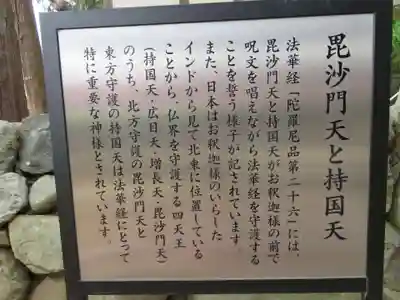 毘沙門天と持国天
法華経「陀羅尼品第二十六」には、
毘沙門天と持国天がお釈迦様の前で
呪文を唱えながら法華経を守護する
ことを誓う様子が記されています
また、日本はお釈迦様のいらした
インドから見て北東に位置している
ことから、仏界を守護する四天王
（持国天・広目天・増長天・毘沙門天）
のうち、北方守護の毘沙門天と
東方守護の持国天は法華経にとって
特に重要な神様とされています。